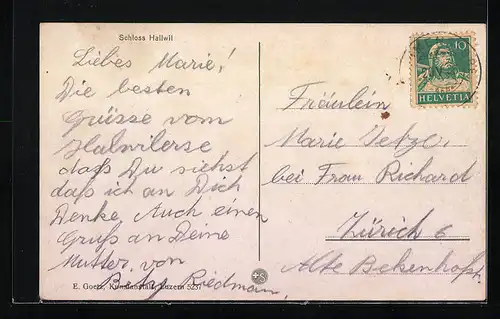 Schloss Hallwil
Liebes Marie!
Die besten
Grüsse vom
Halwilerse
daß Du siehst
daß ich an Dich
Denke. Auch einen
Gruß an Deine
Mutter. von
Bethy Riedmann,
E. Goetz, Kunstanstalt, Luzern 5237
10
HELVETIA
Fräulein
Marie
bei Frau Richard
Zürich 6
Alte